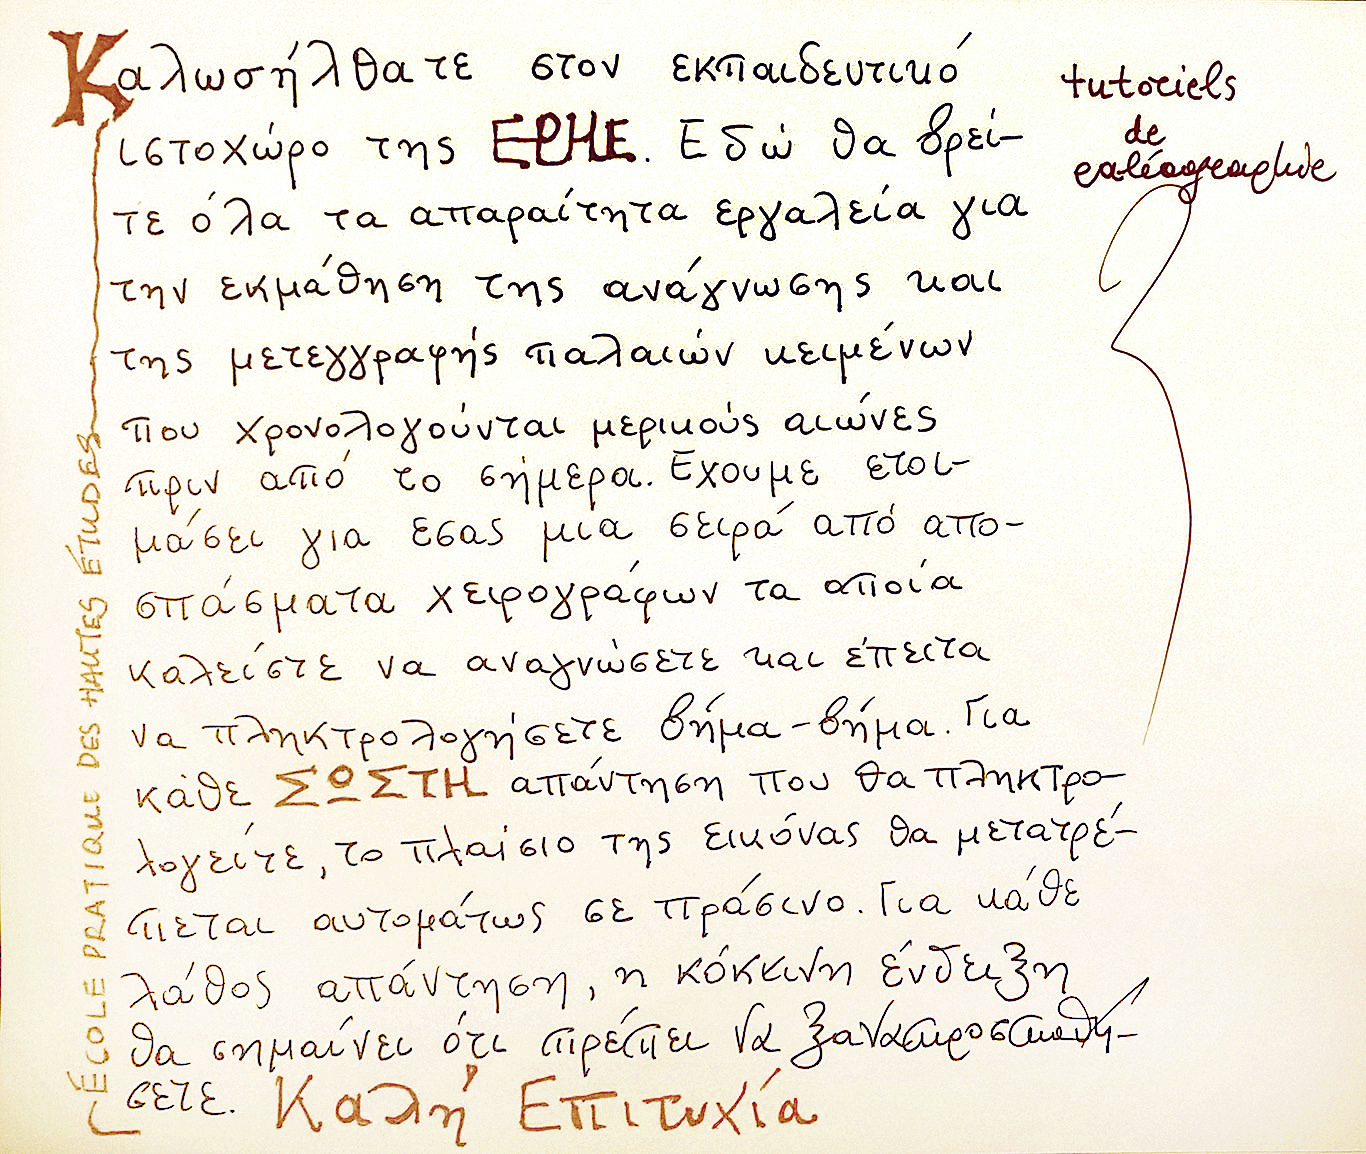 Καλωσήλθατε στον εκπαιδευτικό
ιστοχώρο της EPHE. Εδώ θα βρεί-
τε όλα τα απαραίτητα εργαλεία για
την εκμάθηση της ανάγνωσης και
της μετεγγραφής παλαιών κειμένων
που χρονολογούνται μερικούς αιώνες
πριν από το σήμερα. Έχουμε ετοι-
μάσει για εσας μια σειρά από απο-
σπάσματα χειρογράφων τα οποία
καλείστε να αναγνώσετε και έπειτα
να πληκτρολογήσετε βήμα-βήμα. Για
κάθε ΣΩΣΤΗ απάντηση που θα πληκτρο-
λογείτε, το πλαίσιο της εικόνας θα μετατρέ-
πεται αυτομάτως σε πράσινο. Για κάθε
λάθος απάντηση, η κόκκινη ένδειξη
θα σημαίνει ότι πρέπει να ξαναπροσπαθή-
σετε. Καλή Επιτυχία
tutoriels
de
paléographie
ÉCOLE PRATIQUE DES HAUTES ÉTUDES